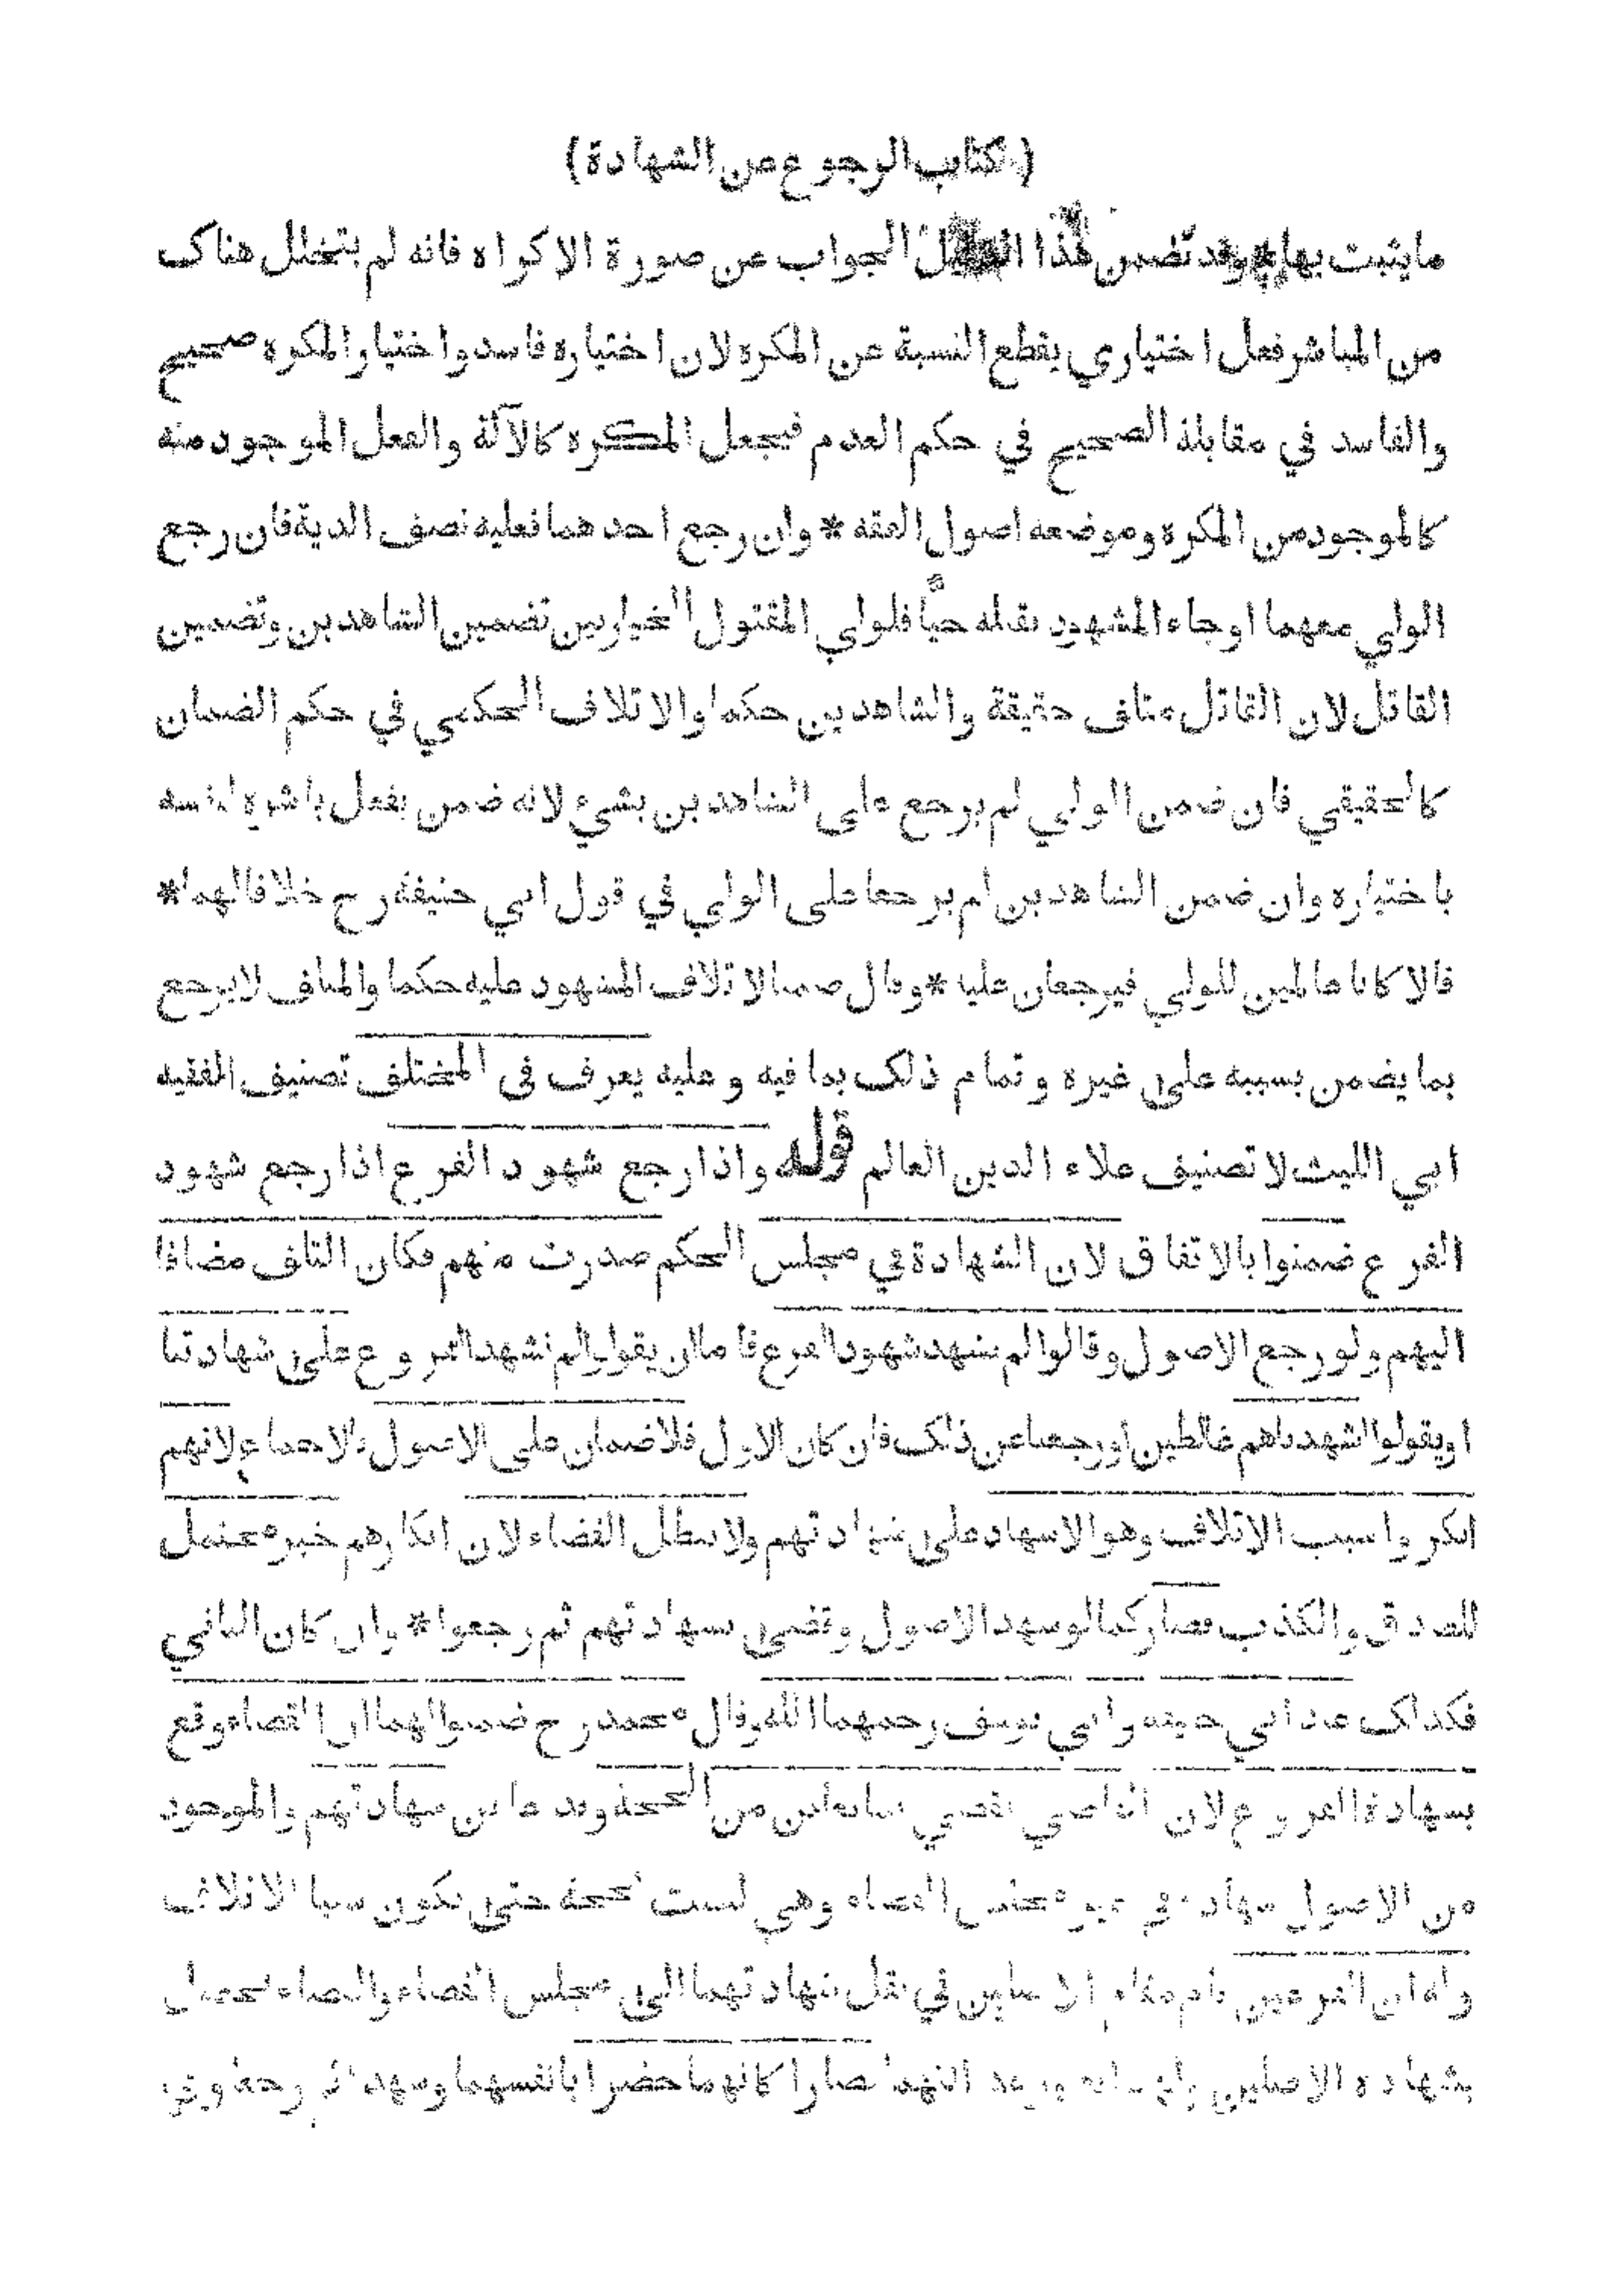 ( كتاب الرجوع من الشهادة )
ما يثبت بها * وقد تضمن هذا الجواب عن صورة الاكراه فانه لم يتخلل هناك
من المباشر فعل اختياري يقطع النسبة عن المكره لان اختياره فاسد واختيار المكره صحيح
والفاسد في مقابلة الصحيح في حكم العدم فيجعل المكره كالآلة والفعل الموجود منه
كالموجود من المكره وموضعه اصول الفقه * وان رجع احدهما فعليه نصف الدية فان رجع
الولي معهما او جاء المشهود بقتله حيّا فلولي المقتول الخيار بين تضمين الشاهدين وتضمين
القاتل لان القاتل متلف حقيقة والشاهدين حكما والاتلاف الحكمي في حكم الضمان
كالحقيقي فان ضمن الولي لم يرجع على الشاهدين بشيء لانه ضمن بفعل باشره لنفسه
باختياره وان ضمن الشاهدين لم يرجعا على الولي في قول ابي حنيفة رح خلافا لهما *
قالا كانا عاملين للولي فيرجعان عليه * وقال ضمنا لاتلاف المشهود عليه حكما والمتلف لا يرجع
بما يضمن بسببه على غيره وتمام ذلك بما فيه وعليه يعرف في المختلف تصنيف الفقيه
ابي الليث لا تصنيف علاء الدين العالم قوله واذا رجع شهود الفرع اذا رجع شهود
الفرع ضمنوا بالاتفاق لان الشهادة في مجلس الحكم صدرت منهم فكان التلف مضافا
اليهم ولو رجع الاصول وقالوا لم نشهد شهود الفرع فاما ان يقولوا لم نشهد الفروع على شهادتنا
او يقولوا اشهدناهم غالطين او رجعنا عن ذلك فان كان الاول فلا ضمان على الاصول بالاجماع لانهم
انكروا سبب الاتلاف وهو الاشهاد على شهادتهم ولا يبطل القضاء لان انكارهم خبر محتمل
للصدق والكذب فصار كما لو شهد الاصول وقضى بشهادتهم ثم رجعوا * وان كان الثاني
فكذلك عند ابي حنيفة وابي يوسف رحمهما الله وقال محمد رح ضمنوا لهما ان القضاء وقع
بشهادة الفروع لان القاضي يقضي بما يعاين من الحجة وقد عاين شهادتهم والموجود
من الاصول شهادة في غير مجلس القضاء وهي ليست بحجة حتى تكون سببا للاتلاف
وله ان الفرعين قام مقام الاصلين في نقل شهادتهما الى مجلس القضاء والقضاء يحصل
بشهادة الاصلين صارا كانهما حضرا بانفسهما وشهدا ثم رجعا وفي